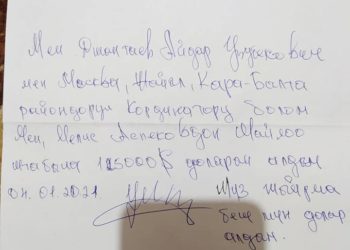 Мен Джантаев Айдар Усубекович
мен Москва, Жайыл, Кара-Балта
райондорун Кординатору болом
Мен, Мелис Аспековдон Шайлоо
штабына 125000$ доларан алдым
04.01.2021. Жүз жыйрма
беш мин долар
алдым.